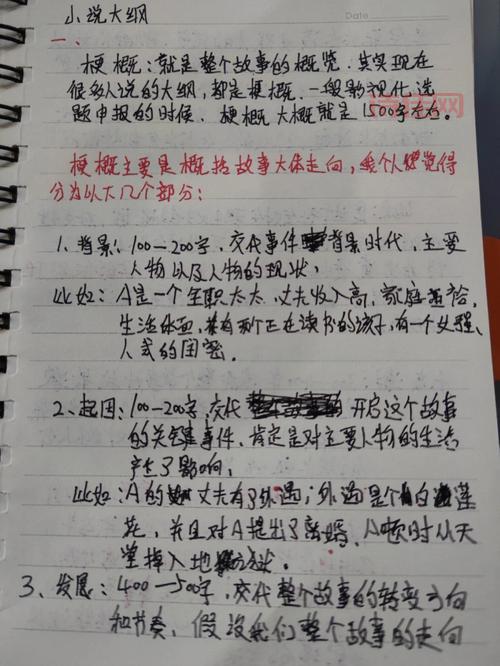 小说大纲
Date
一、
梗概：就是整个故事的概览。其实现在
很多人说的大纲，都是梗概。一般影视化选
题申报的时候，梗概大概就是1500字左右。
梗概主要是概括故事大体走向，我个人觉得
分为以大几个部分：
1、背景：100—200字，交代事件背景时代，主要
人物以及人物的现状，
比如：A是一个全职太太，丈夫收入高，家庭
生活体面，有两个正在读书的孩子，有一个女强
人式的闺蜜。
2、起因：100—200字，交代开启这个故事
的关键事件，肯定是对主要人物的生活
产生了影响，
比如：A的丈夫有了外遇；外遇是个白莲
花，并且对A提出了离婚，A顿时从天
堂掉入地狱
3、发展：400—500字，交代整个故事的转变方向
和节奏，假设我们整个故事的走向